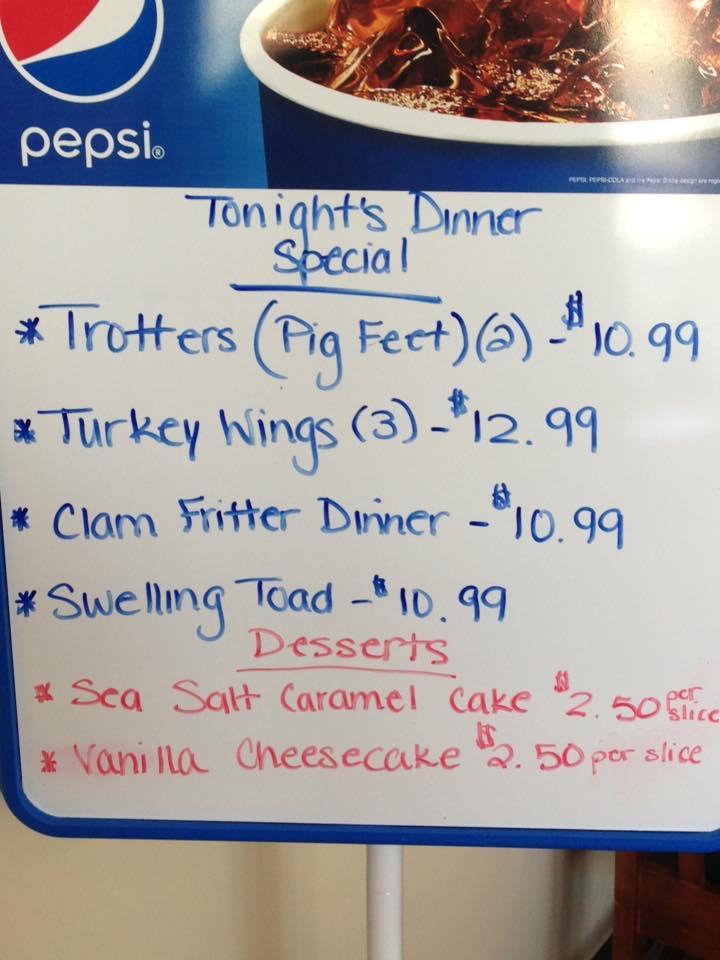 pepsi®
Tonight's Dinner
Special
* Trotters (Pig Feet)(2) - $10.99
* Turkey Wings (3) - $12.99
* Clam Fritter Dinner - $10.99
* Swelling Toad - $10.99
Desserts
* Sea Salt Caramel Cake $2.50 per slice
* Vanilla Cheesecake $2.50 per slice